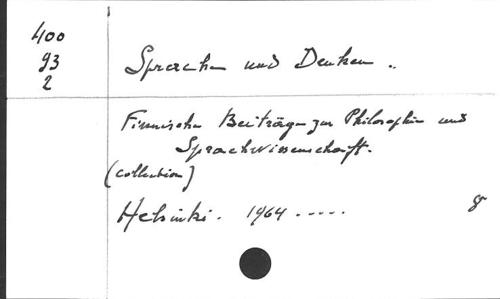 400
93
2
Sprache und Denken.
Finnische Beiträge zur Philosophie und
Sprachwissenschaft.
(collection)
Helsinki. 1964 .....